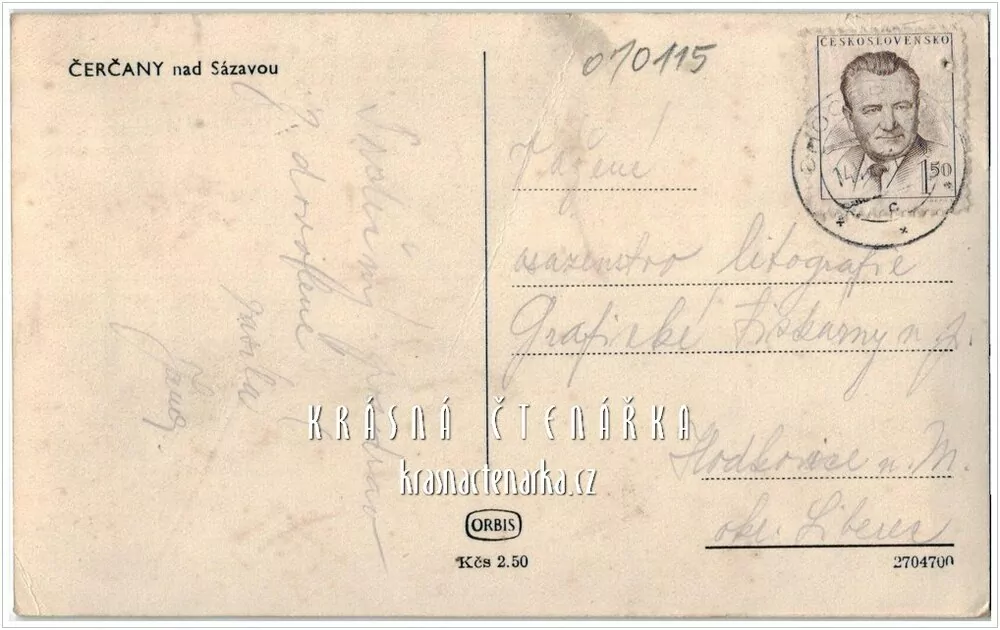 ČERČANY nad Sázavou
010115
ČESKOSLOVENSKO
1 50
Srdečný pozdrav
z dovolené
Vážení
osazenstvo litografie
Grafické
Hodkovice n. M.
okr. Liberec
KRÁSNÁ ČTENÁŘKA
krasnactenarka.cz
ORBIS
Kčs 2.50
2704700